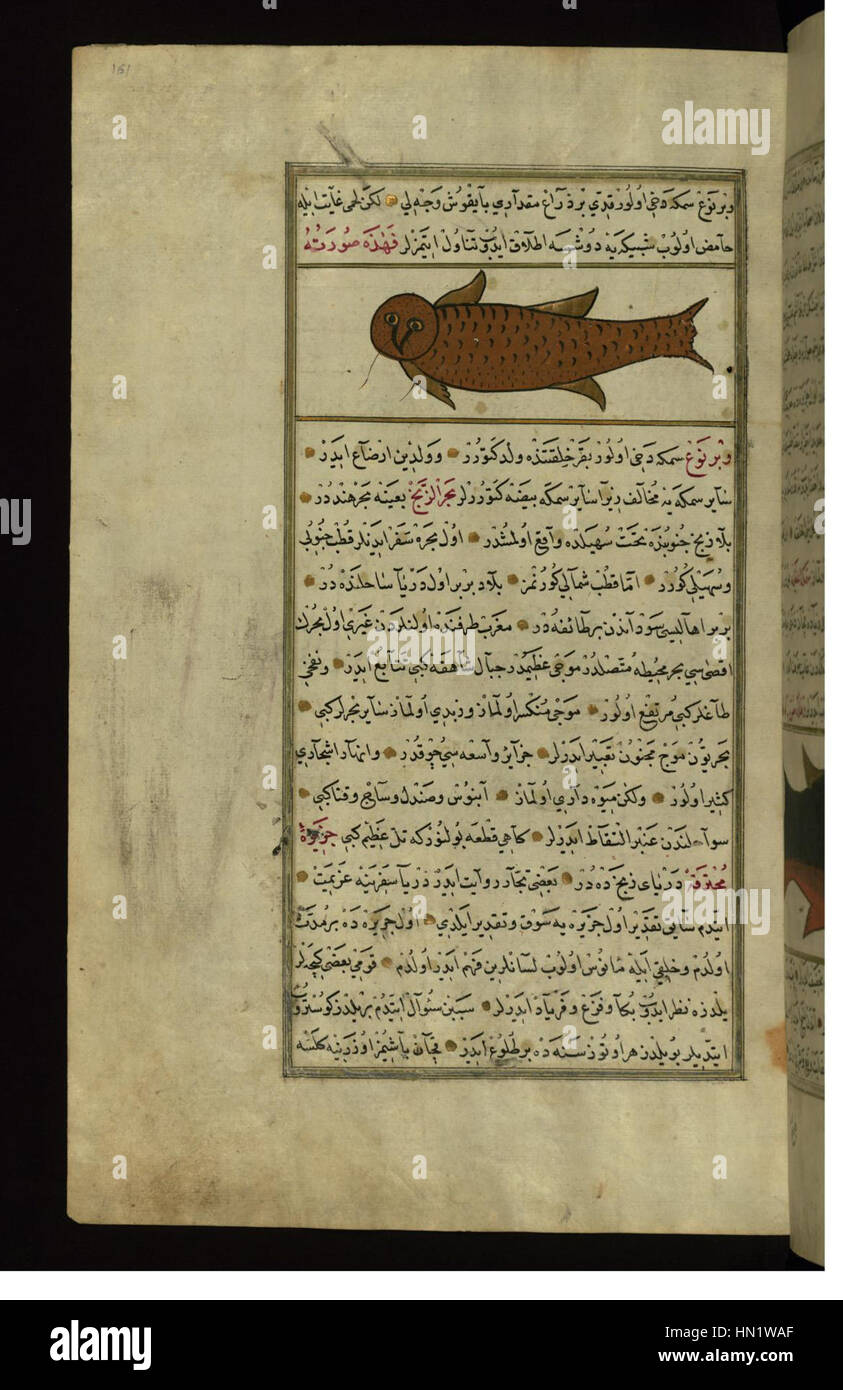 161
وبر نوع سمكه دخی اولور قدی بر ذراع مقداری بایقوش وجهلی لكن لحمی غایت ایله
حامض اولوب شبیكه یه دوشسه اطلاق ایدوب تناول ایتمزلر فهذه صورته
وبر نوع سمكه دخی اولور بقر خلقتنده ولد كتورر وولدین ارضاع ایدر
سایر سمكه یه مخالف زیرا سایر سمكه بیضه كتوررلر بحر الزنج بعینه بحر هنددر
بلاد زنج جنوبنده تحت سهیلده واقع اولمشدر اول بحره سفر ایدنلر قطب جنوبی
وسهیلی كورر اما قطب شمالی كورنمز بلاد بربر اول دریا ساحلنده در
بربر اهالیسی سوداندن بر طائفه در مغرب طرفنده اولنلردن غیری اول بحرك
اقصاسی بحر محیطه متصلدر موجی عظیمدر جبال شاهقه كبی تتابع ایدر
طاغلر كبی مرتفع اولور موجی منكسر اولماز وزبدی اولماز سایر بحرلر كبی
بحریون موج مجنون تعبیر ایدرلر جزایر واسعه سی چوقدر وانهار اشجاری
كثیر اولور ولكن میوه داری اولماز آبنوس وصندل وساج وقنا كبی
سواحلندن عنبر التقاط ایدرلر كاهی قطعه بولنور كه تل عظیم كبی جزیرۀ
محترقه دریای زنجده در بعضی تجار روایت ایدر دریا سفرینه عزیمت
ایتدم سایق تقدیر اول جزیره یه سوق وتقدیر ایلدی اول جزیره ده بر مدت
اولدم وخلقی ایله مانوس اولوب لسانلرین فهم ایدر اولدم قومی بعضی كیجه لر
یلدزه نظر ایدوب بكا وفزع وفریاد ایدرلر سببن سئوال ایتدم بر یلدز كوستروب
ایتدیلر بو یلدز هر اوتوز سنه ده بر طلوع ایدر قچان باشمز اوزرینه كلسه
alamy
alamy
a
Image ID: HN1WAF
www.alamy.com